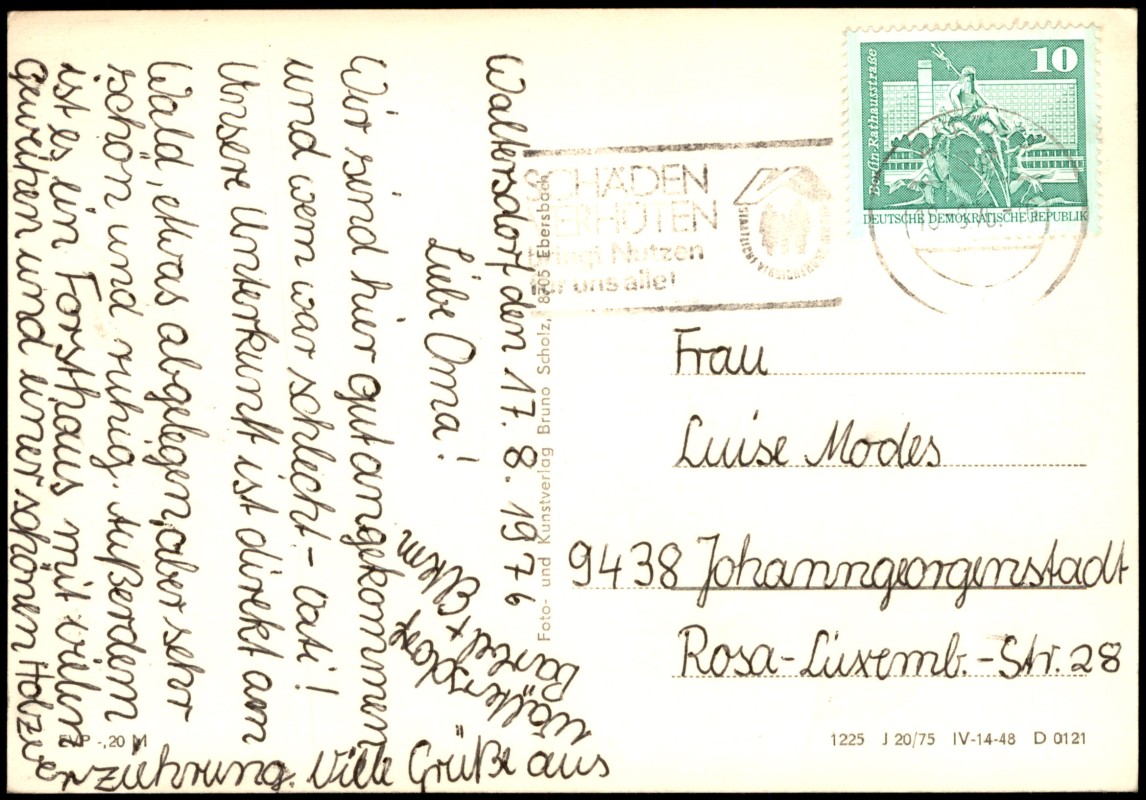 Waltersdorf den 17.8.1976
Liebe Oma!
Wir sind hier gut angekommen
und wem war schlecht – Vati!
Unsere Unterkunft ist direkt am
Wald, etwas abgelegen, aber sehr
schön und ruhig. Außerdem
ist es ein Forsthaus mit vielen
Geweihen und einer schönen Holzver
ziehrung. Viele Grüße aus
Waltersdorf
Foto- und Kunstverlag Bruno Scholz, 8705 Ebersbach
EVP -,20 M
SCHÄDEN
VERHÜTEN
bringt Nutzen
für uns alle!
STAATLICHE VERSICHERUNG
10
Berlin-Rathausstraße
DEUTSCHE DEMOKRATISCHE REPUBLIK
Frau
Luise Modes
9438 Johanngeorgenstadt
Rosa-Luxemb.-Str. 28
1225 J 20/75 IV-14-48 D 0121